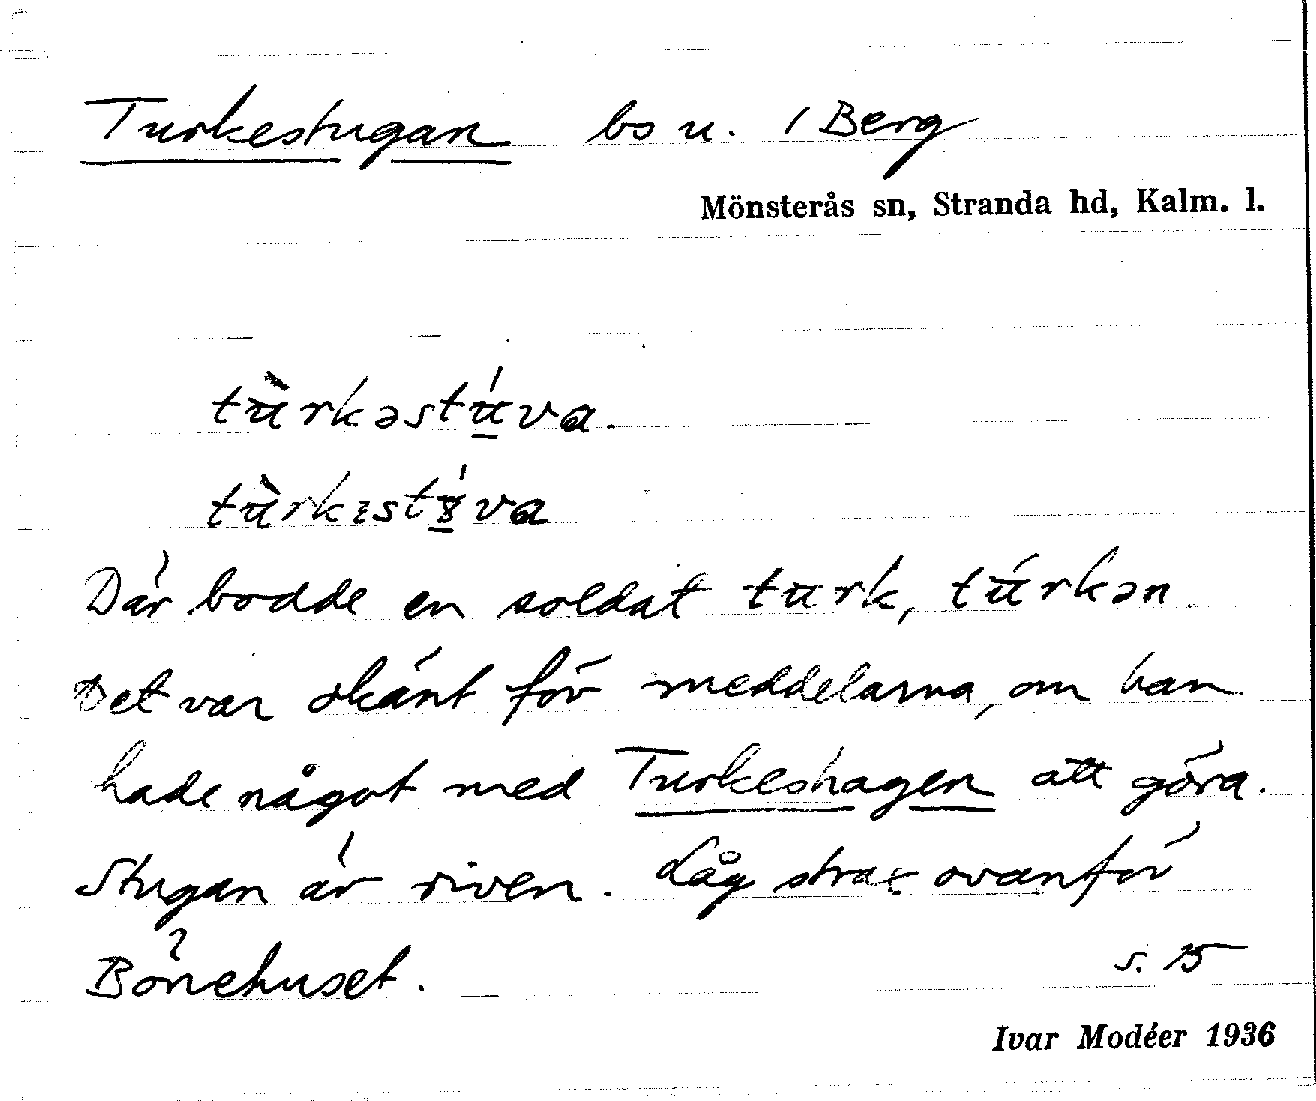 Turkestugan bs u. 1 Berg
Mönsterås sn, Stranda hd, Kalm. l.
tùrkəstúva.
tùrkɪstýva
Där bodde en soldat turk, túrkən
Det var okänt för meddelarna, om han
hade något med Turkeshagen att göra.
Stugan är riven. Låg strax ovanför
Bönehuset.
s. 15
Ivar Modéer 1936